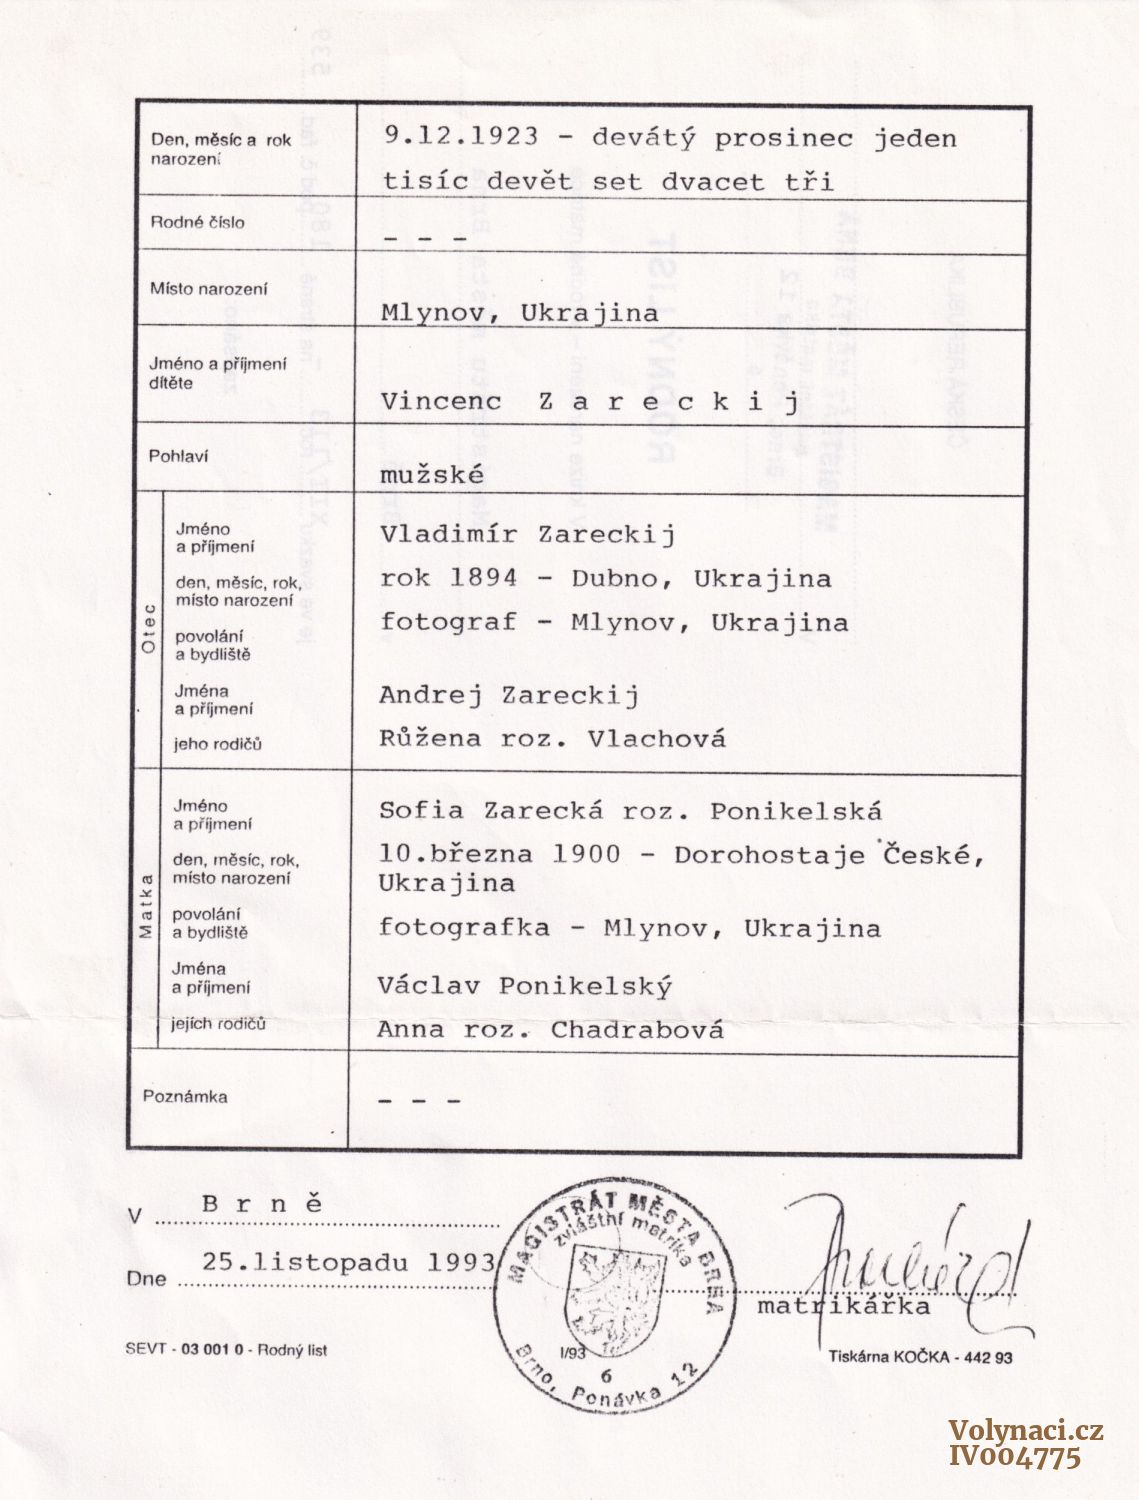 Den, měsíc a rok
narození
9.12.1923 - devátý prosinec jeden
tisíc devět set dvacet tři
Rodné číslo
- - -
Místo narození
Mlynov, Ukrajina
Jméno a příjmení
dítěte
Vincenc Z a r e c k i j
Pohlaví
mužské
Otec
Jméno
a příjmení
Vladimír Zareckij
den, měsíc, rok,
místo narození
rok 1894 - Dubno, Ukrajina
povolání
a bydliště
fotograf - Mlynov, Ukrajina
Jména
a příjmení
Andrej Zareckij
jeho rodičů
Růžena roz. Vlachová
Matka
Jméno
a příjmení
Sofia Zarecká roz. Ponikelská
den, měsíc, rok,
místo narození
10.března 1900 - Dorohostaje České,
Ukrajina
povolání
a bydliště
fotografka - Mlynov, Ukrajina
Jména
a příjmení
Václav Ponikelský
jejích rodičů
Anna roz. Chadrabová
Poznámka
- - -
V B r n ě
Dne 25.listopadu 1993
MAGISTRÁT MĚSTA BRNA
zvláštní matrika
I/93
6
Brno, Ponávka 12
matrikářka
SEVT - 03 001 0 - Rodný list
Tiskárna KOČKA - 442 93
Volynaci.cz
IV004775